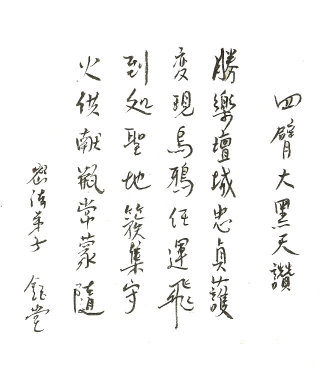 四臂大黑天讚
勝樂壇城忠貞護
变現烏鴉任運飛
到処聖地簇集守
火供献瓶常蒙隨
密法弟子 鈺堂